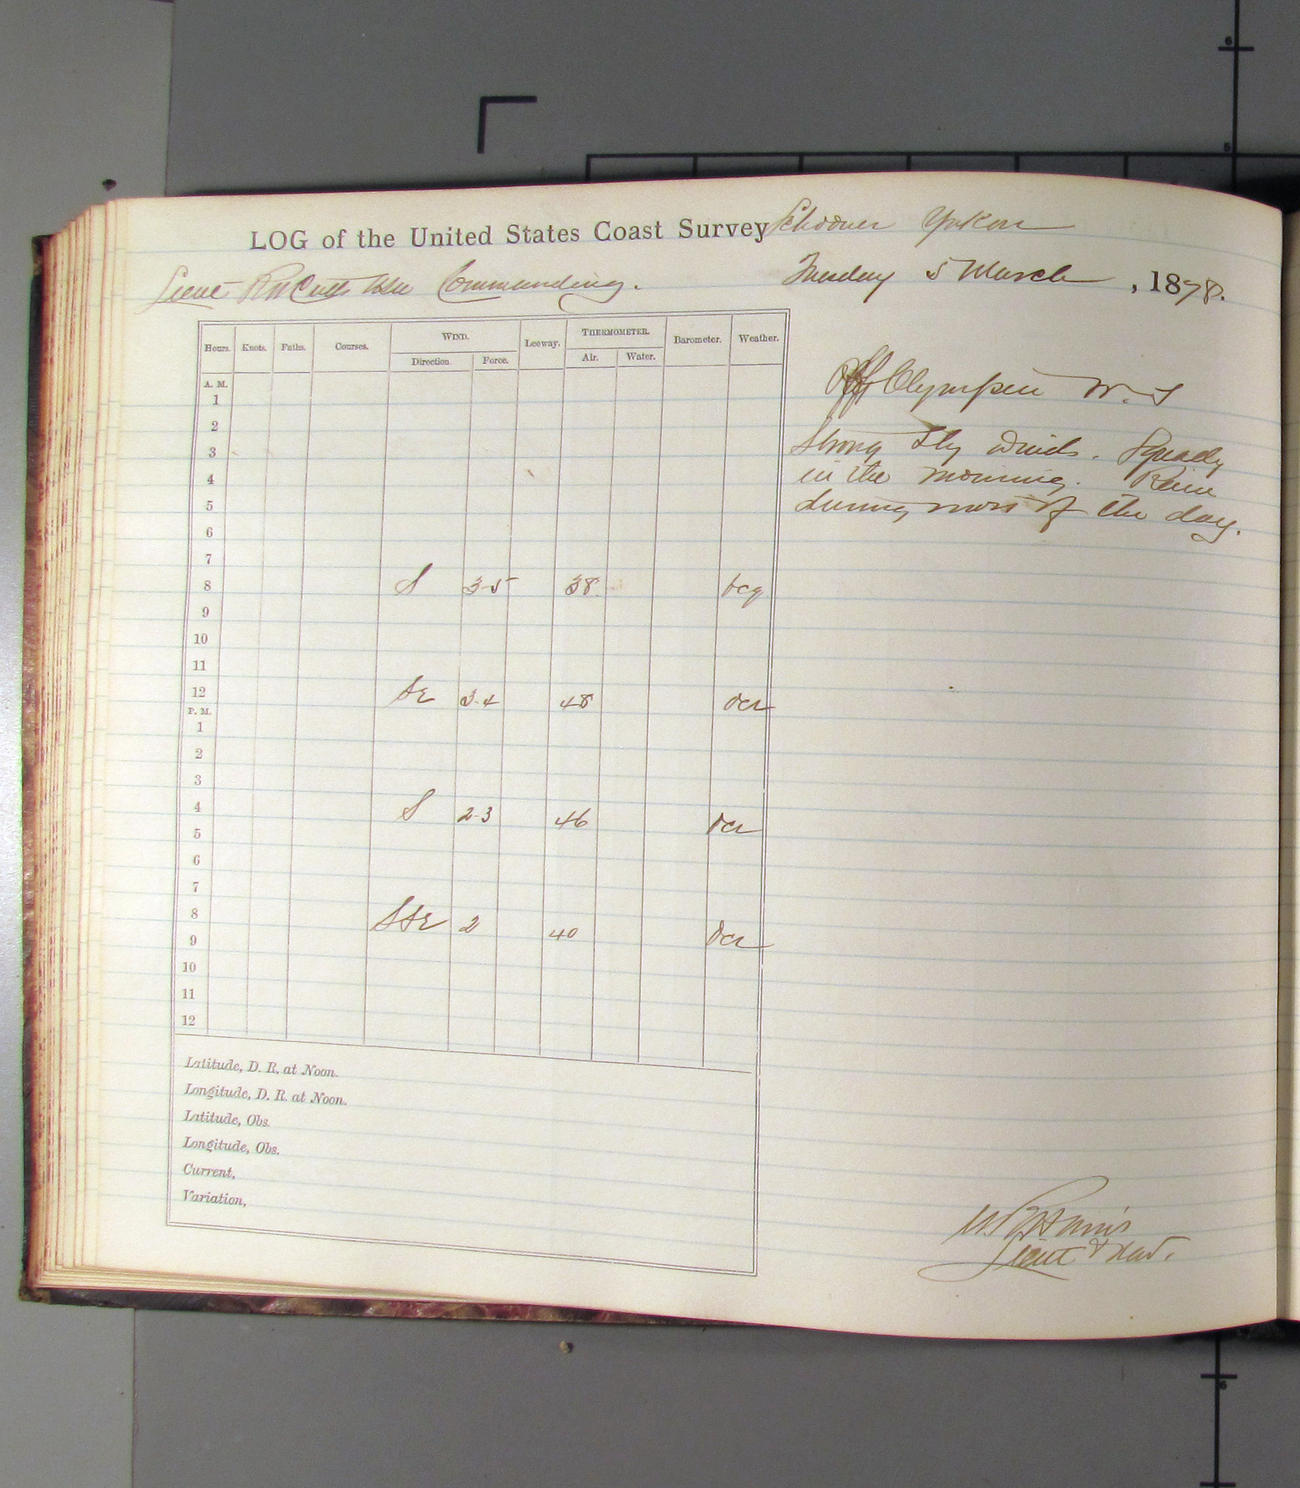 LOG of the United States Coast Survey Schooner Yukon
Lieut Commanding. Tuesday 5 March, 1878.
Hours. Knots. Faths. Courses. WIND. Leeway. THERMOMETER. Barometer. Weather.
Direction. Force. Air. Water.
A. M.
1
2
3
4
5
6
7
8 S 3-5 38 bcq
9
10
11
12 SE 3-4 48 ocr
P. M.
1
2
3
4 S 2-3 46 ocr
5
6
7
8 SSE 2 40 ocr
9
10
11
12
Latitude, D. R. at Noon.
Longitude, D. R. at Noon.
Latitude, Obs.
Longitude, Obs.
Current,
Variation,
Off Olympia W. T
Strong Sly winds. Squally
in the morning. Rain
during most of the day.
Lieut & Nav.
6
5
6